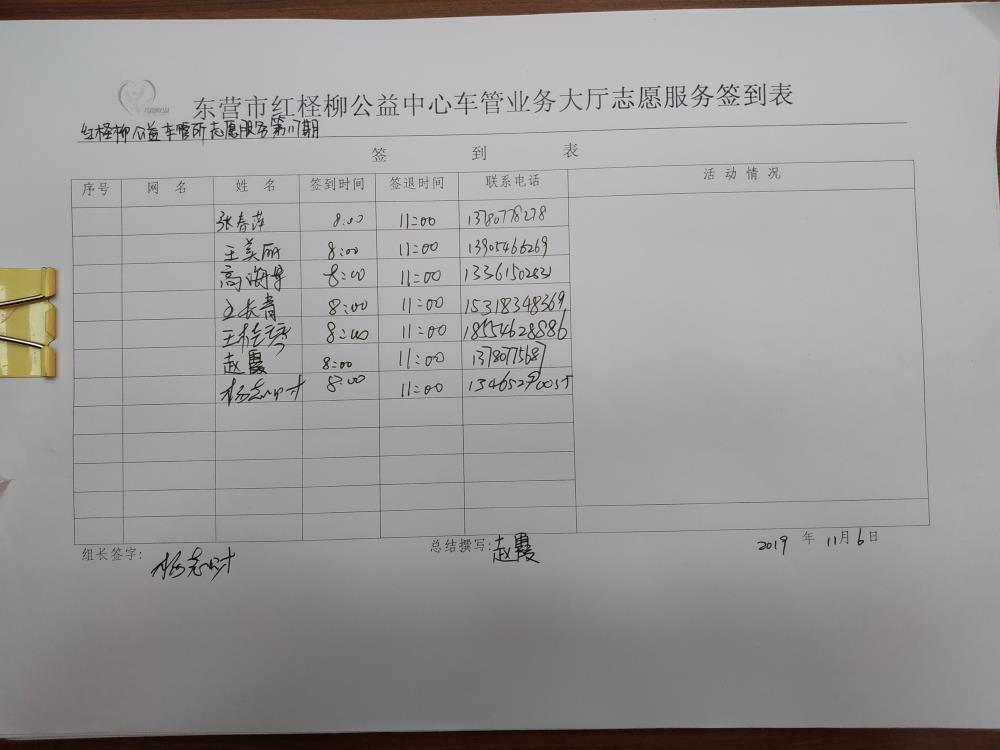 东营市红柽柳公益中心车管业务大厅志愿服务签到表
红柽柳公益车管所志愿服务第117期
签 到 表
序号 网 名 姓 名 签到时间 签退时间 联系电话 活 动 情 况
张春萍 8:00 11:00 13780778278
王美丽 8:00 11:00 13905466269
高海 8:00 11:00 13361502831
王长青 8:00 11:00 15318348369
王桂 8:00 11:00 18554628886
赵霞 8:00 11:00 13780775687
杨志时 8:00 11:00 13465290055
组长签字: 杨志时 总结撰写: 赵霞 2019 年 11月 6日